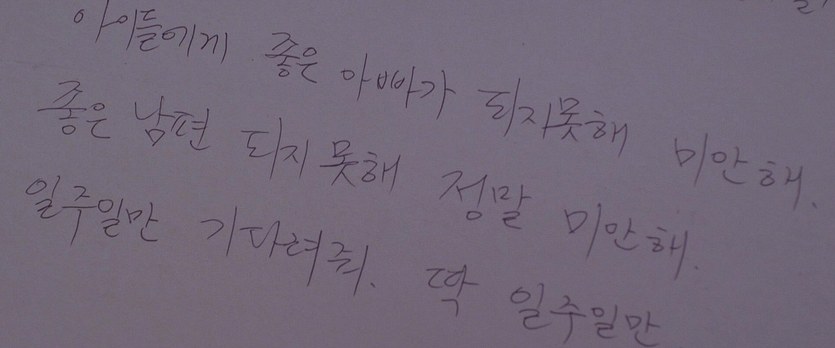 아이들에게 좋은 아빠가 되지못해 미안해.
좋은 남편 되지 못해 정말 미안해.
일주일만 기다려줘. 딱 일주일만